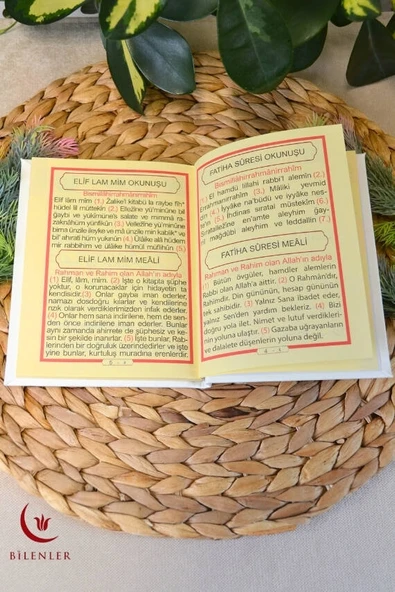 ELİF LAM MİM OKUNUŞU
Bismillâhirrahmânirrahîm
Elif lâm mîm. (1.) Zalikel kitâbü la raybe fîh*
hüdel lil müttekin (2.) Ellezîne yü'minûne bil
ğaybi ve yükîmûnes salate ve mimmâ ra-
zaknâhüm yünfikûn (3.) Vellezîne yü'minûne
bima ünzile ileyke ve mâ ünzile min kablik* ve
bil' ahırati hüm yuknûn (4.) Ülâike alâ hüdem
mir rabbihim ve ulâike hümül müflihûn (5.)
ELİF LAM MİM MEÂLİ
Rahman ve Rahim olan Allah'ın adıyla
(1) Elif, lâm, mîm. (2) İşte o kitapta şüphe
yoktur, o korunacaklar için hidayetin ta
kendisidir. (3) Onlar gayba iman ederler,
namazı dosdoğru kılarlar ve kendilerine
rızık olarak verdiklerimizden infak ederler.
(4) Onlar hem sana indirilene, hem de sen-
den önce indirilene iman ederler. Bunlar
aynı zamanda ahirete de şüphesiz ve ke-
sin bir şekilde inanırlar. (5) İşte bunlar, Rab-
lerinden bir doğruluk üzerindedirler ve işte
yine bunlar, kurtuluş muradına erenlerdir.
FATİHA SÛRESİ OKUNUŞU
Bismillâhirrahmânirrahîm
(1.) El hamdü lillahi rabbi'l alemin (2.)
Errahmanirrahim (3.) Mâliki yevmid
din (4.) İyyâke na'büdu ve iyyâke nes-
ta'in (5.) İhdinas sıratal müstekîm (6.)
Sıratallezîne en'amte aleyhim ğay-
ril mağdûbi aleyhim ve leddallin (7.)
FATİHA SÛRESİ MEÂLİ
Rahman ve Rahim olan Allah'ın adıyla
(1) Bütün övgüler, hamdler alemlerin
Rabbi olan Allah'a aittir. (2) O Rahman'dır,
Rahimdir. Din gününün, hesap gününün
tek sahibidir. (3) Yalnız Sana ibadet eder,
yalnız Sen'den yardım bekleriz. (4) Bizi
doğru yola ilet. Nimet ve lutuf verdikleri-
nin yoluna ulaştır. (5) Gazaba uğrayanların
ve dalalete düşenlerin yoluna değil.
BİLENLER